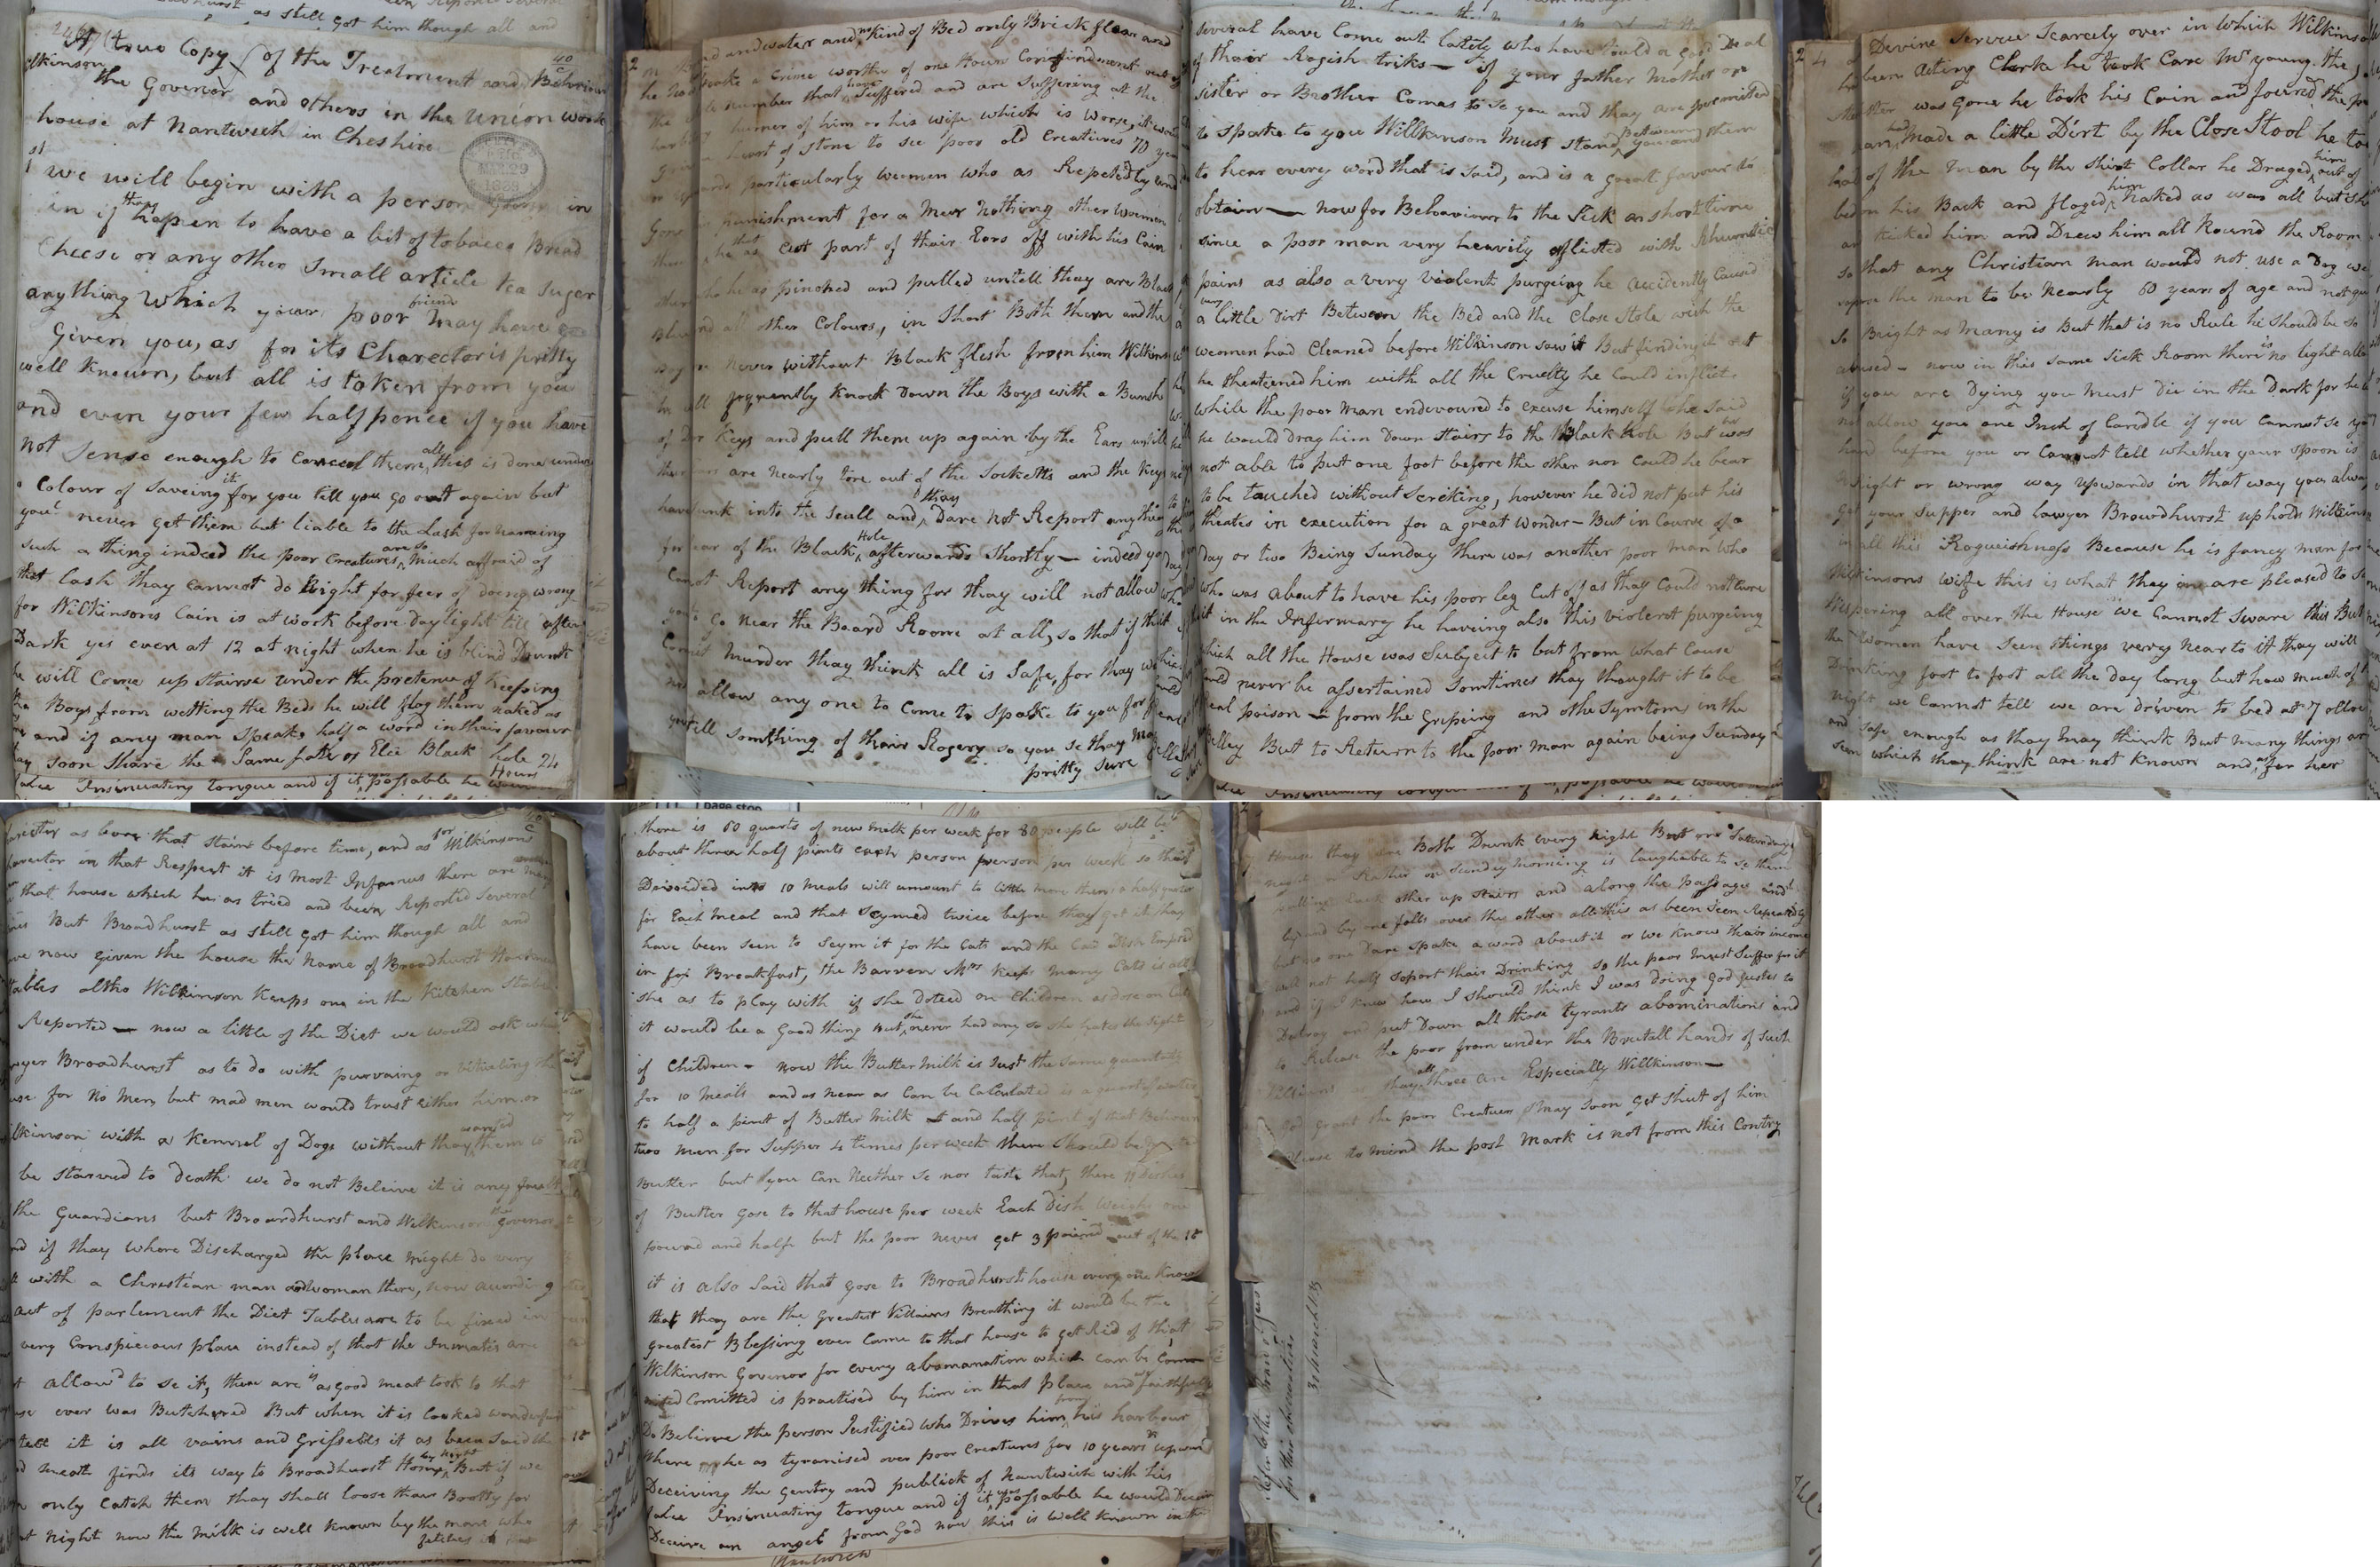 A true Copy of the Treatment and Behaviour
Wilkinson
the Govenor and others in the Union work
house at Nantwich in Cheshire
1st we will begin with a person going in
in if thay hapen to have a bit of tobacco Bread
Cheese or any other Small article tea Suger
anything which your poor friend may have
Given you, as for its Charector is pritty
well known, but all is taken from you
and even your few halfpence if you have
not Sense enough to Conceal them, all this is done under
a Colour of Saveing it for you till you go out again but
you never get them but liable to the Lash for naming
such a thing indeed the poor Creatures are so much affraid of
that Lash thay cannot do Right for feer of doing wrong
for Wilkinsons Cain is at work before daylight till after
Dark yes even at 12 at night when he is blind Drunk
he will Come up Stairse under the pretence of Keeping
the Boys from wetting the Beds he will flog them naked as
and if any man Speaks half a word in thair favour
thay Soon Share the Same fate or Else Black hole 24
Hours
on Bread and water and no Kind of Bed only Brick floor and
he has spoke a Crime worthy of one Hours Confindment out of
the whole number that have Suffered and are Suffering at the
humer of him or his wife which is Worse, it would
Grieve a heart of Stone to see poor old Creatures 70 years
or upwards particularly weomen who as Repetedly
punishment for a Mear Nothing other weomen
then that he as Cut part of thair Ears off with his Cain
others who he as pinched and pulled untill thay are Black
Blue and all other Colours, in Short Both them and the
Boys are never without Black flesh from him Wilkinson
he will frequently Knock Down the Boys with a Bunch
of Dor Keys and pull them up again by the Ears untill
there ears are nearly tore out of the Socketts and the Keys
have sunk into the Scull and thay Dare not Report anything
for fear of the Black Hole afterwards Shortly — indeed you
Canot Report any thing for thay will not allow
you to Go near the Board Room at all, so that if thay
Comit Murder thay think all is Safe, for thay will
not allow any one to Come to Spake to you for fear
you tell something of thair Rogery so you Se thay may
pritty Sure
Several have Come out lately who have tould a good Deal
of thair Rogish triks — if your father Mother or
sister or Brother Comes to Se you and thay are permited
to Spake to you Willkinson Must Stand Between you and them
to hear every word that is Said, and is a great favour to
obtain — now for Behaviour to the Sick a short time
since a poor man very heavily aflicted with Rhumatic
pains as also a very violent purgeing he accidently Caused
a very little Dirt Between the Bed and the Close Stole wich the
weomen had Cleaned before Wilkinson saw it But finding it out
he theatened him with all the Cruelty he Could inflict
while the poor Man endevoured to excuse himself he said
he would drag him Down Stairs to the Black hole But he was
not able to put one foot before the other nor Could he bear
to be touched without Scriking, however he did not put his
theates in execution for a great wonder — But in Course of a
day or two Being Sunday there was another poor man who
who was about to have his poor leg Cut off as thay Could not cure
it in the Infirmary he haveing also this violent purgeing
which all the House was Subject to but from what Cause
Could never be assertained Somtimes thay thought it to be
real poison — from the Gripeing and othe Symtoms in the
Belley But to Return to the poor man again being Sunday
Devine Service Scarcely over in which Wilkinson
been Acting Clarke he took Care Mr young the
Master was gone he took his Cain and found the poor
man had made a little Dirt by the Close Stool he took
hold of the Man by the Shirt Collar he Draged him out of
bed on his Back and floged him Naked as was all but
and Kicked him and Drew him all Round the Room
so that any Christian man would not use a Dog we
supose the man to be Nearly 60 years of age and not quite
So Bright as Many is But that is no Rule he Should be so
abused — now in this same Sick Room there is no light
if you are Dying you Must Die in the Dark for he will
not allow you one Inch of Candle if you Cannot Se your
hand before you or Cannot tell whether your Spoon is
Right or wrong way upwards in that way you always
Get your Supper and Lawyer Broardhurst uphold Wilkinson
in all this Rogueishness Because he is fancy man for
Wilkinsons wife this is what they are pleased to
Wispering all over the House We Cannot Sware this But
the Women have Seen things very Near to it thay will
Drinking foot to foot all the day long but how much of
night we Cannot tell we are driven to bed at 7 oClock
and Safe enough as thay may think But Many things are
Seen which thay think are not Known and as for her
Carectter as bore that Stain before time, and as for Wilkinson
Carector in that Respect it is Most Infamus there are
in that house which he as tried and been Reported Several
times But Broadhurst as Still got him though all and
have now Given the house the Name of Broadhurst
Stables altho Wilkinson Keeps one in the Kitchen Stable
Reported — now a little of the Diet we would ask what
Lawyer Broadhurst as to do with purvaing or vitualing the
house for No Men but mad men would trust either him or
Wilkinson with a Kennel of Dogs without thay wanted them to
be Starved to death we do not Beleive it is any fault
the Guardians but Broardhurst and Wilkinson the govenor
and if thay whore Discharged the place might do very
well with a Christian man and woman there, now according
act of parlement the Diet Tables are to be fixed in
very Conspicious place instead of that the Inmates are
not allowd to Se it, there is as good meat took to that
house ever was Butchered But when it is Cooked wonderfull
to tell it is all vains and Grissells it as been Said the
Good Meate finds its way to Broadhurst House by Night But if we
can only Catch them thay Shall loose thair Bootty for
that night now the milk is well Known by the man who
fetches it
there is 60 quarts of new milk per week for 80 people will be
about three half pints each person person per week so this
Devoided into 10 Meals will amount to little more then a half quarter
for Each Meal and that Scymed twice before thay get it thay
have been seen to Scym it for the Cats and the Cats Dish Emptied
in for Breakfast, the Barren Mrs Keeps Many Cats is all
she as to play with if she doted on Children as dose on Cats
it would be a Good thing but she never had any so she hates the Sight
of Children — now the Butter Milk is Just the Same quantity
for 10 meals and as near as Can be Calculated is a quart of water
to half a pint of Butter Milk and half pint of that Between
two Men for Supper 4 times per week there Should be
Butter but you Can Neither Se nor taste that, there 11 Dishes
of Butter Gose to that house per week Each Dish weighs one
pound and half but the poor never get 3 pound out of the 18
it is also Said that gose to Broadhursts house every one Knows
that thay are the Greatest Villains Breathing it would be the
greatest Blessing ever Came to that house to get Rid of that
Wilkinson Govenor for every abomanation which can be Com
mited Comitted is practised by him in that place and as faithfully
Do Believe the person Justified who Drives him from his harbour
where he as tyranised over poor Creatures for 10 years upward
Deceiving the Gentry and publick of Nantwich with his
false Insinuating tongue and if it was possable he would Deceive
Deceive an angel from God now this is well Known in the
House thay are Both Drunk every night But on a Saturday
night or Rather on Sunday Morning is laughable to Se them
pulling Each other up Stairs and along the passages and
by and by one falls over the other all this as been Seen Repeatedly
but no one Dare Spake a word about it or we Know thair income
will not half Soport thair Drinking so the poor Must Suffer for it
and if I Knew how I should think I was doing God Justes to
Destroy and put Down all those tyrants abominations and
to Release the poor from under the Brutall hands of Such
Villians as thay all three are Especially Willkinson —
God grant the poor Creatures May Soon get Shut of him
Please to mind the post Mark is not from this Contry
Refer to the Board of Guardians
for their observations
31 March 1838